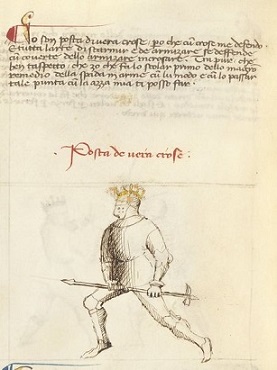 Io son posta di vera crose, po che cũ crose me defendo.
E tutta larte di scrimir e de armizare se deffende
cũ coverte dello armizare incrosare. Tra pur che
ben taspeto, che zo che fa lo scolar primo dello magro
remedio della spada in arme cũ lo modo e cũ lo passar
tale punta cũ la azza mia ti posso far.
Posta de vera crose.